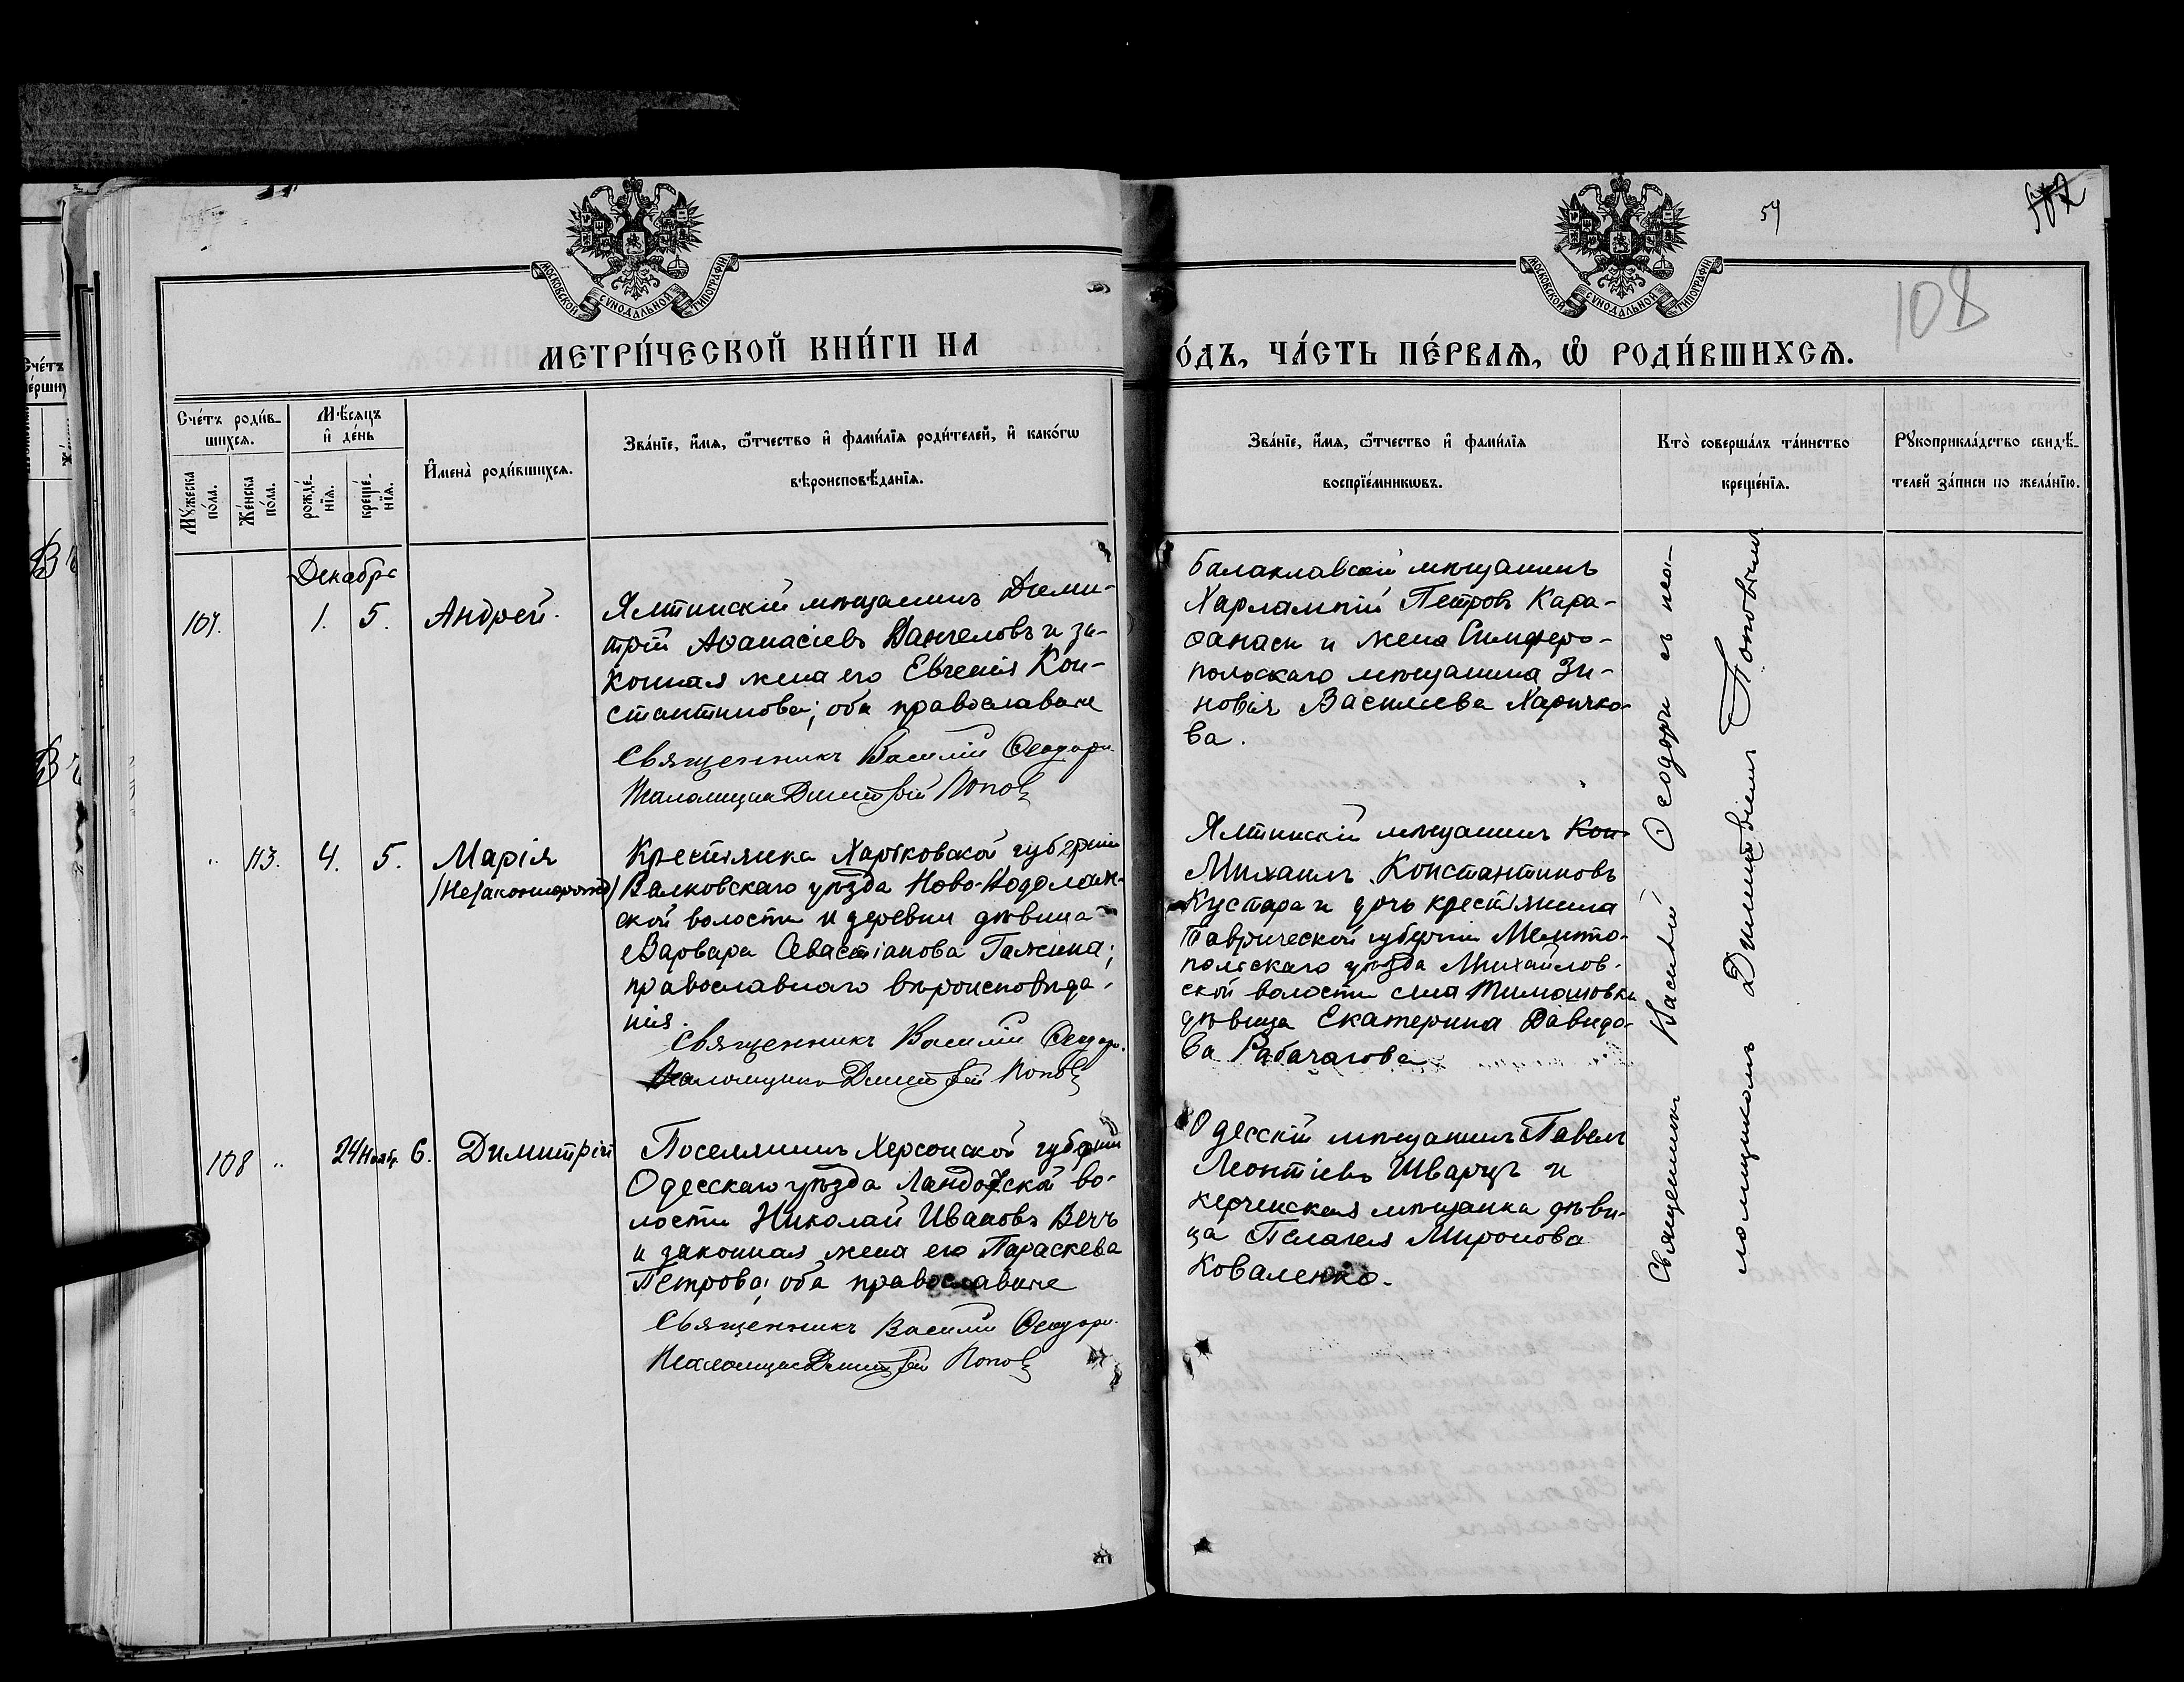 59
108
МОСКОВСКОЙ СѴНОДАЛЬНОЙ ТИПОГРАФІИ
МОСКОВСКОЙ СѴНОДАЛЬНОЙ ТИПОГРАФІИ
МЕТРИ́ЧЕСКОЙ КНИ́ГИ НА
О́ДЪ, ЧА́СТЬ ПЕ́РВАѦ, Ѡ҆ РОДИ́ВШИХСѦ.
Сче́тъ роди́в-
шихсѧ.
Мꙋ́жеска
по́ла.
Же́нска
по́ла.
Мѣ́сѧцъ
и҆ де́нь
рожде́-
нїѧ.
креще́-
нїѧ.
И҆мена̀ роди́вшихсѧ.
Зва́нїе, и҆́мѧ, ѻ҆́тчество и҆ фами́лїѧ роди́телей, и҆ како́гѡ
вѣроисповѣ́данїѧ.
Зва́нїе, и҆́мѧ, ѻ҆́тчество и҆ фами́лїѧ
воспрїе́мникѡвъ.
Кто̀ соверша́лъ та́инство
креще́нїѧ.
Рꙋкоприкла́дство свидѣ́-
телей за́писи по жела́нїю.
Декабрь
107.
1.
5.
Андрей.
Ялтинскій мѣщанинъ Дими-
трій Аѳанасіевъ Ванчеловъ и за-
конная жена его Евгенія Кон-
стантинова; оба православные
Священникъ Василій Ѳеодори
Псаломщикъ Димитрій Поповъ
Балаклавскій мѣщанинъ
Харлампій Петровъ Кара-
фанаси и жена Симферо-
польскаго мѣщанина Зи-
новія Васильева Харичко-
ва.
113.
4.
5.
Марія
(Незаконнорожд)
Крестьянка Харьковской губерніи
Валковскаго уѣзда Ново-Водолаж-
ской волости и деревни дѣвица
Варвара Севастіанова Гажина;
православнаго вѣроисповѣда-
нія.
Священникъ Василій Ѳеодори
Псаломщикъ Димитрій Поповъ
Ялтинскій мѣщанинъ Кон-
Михаилъ Константиновъ
Кустара и дочь крестьянина
Таврической губерніи Мелито-
польскаго уѣзда Михайлов-
ской волости села Тимошовки
дѣвица Екатерина Давидо-
ва Рабачагова
108
24 Ноябр.
6.
Димитрій
Поселянинъ Херсонской губерніи
Одесскаго уѣзда Ландауской во-
лости Николай Ивановъ Вечъ
и законная жена его Параскева
Петрова; оба православные
Священникъ Василій Ѳеодори
Псаломщикъ Димитрій Поповъ
Одесскій мѣщанинъ Павелъ
Леонтіевъ Шварцъ и
керченская мѣщанка дѣви-
ца Пелагея Миронова
Коваленко.
Священникъ Василій Ѳеодори съ пса-
ломщикомъ Димитріемъ Поповымъ